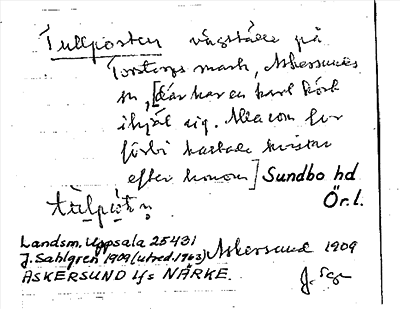 Tullposten vägställe på
Torstorps mark, Askersunds
sn, [där har en karl kört
ihjäl sig. Alla som for
förbi kastade kvistar
efter honom] Sundbo hd
Ör.l.
tùlpós̀tn̥
Landsm. Uppsala 25431
J. Sahlgren 1909 (utred. 1963) Askersund 1909
ASKERSUND lfs NÄRKE. J. Sgn